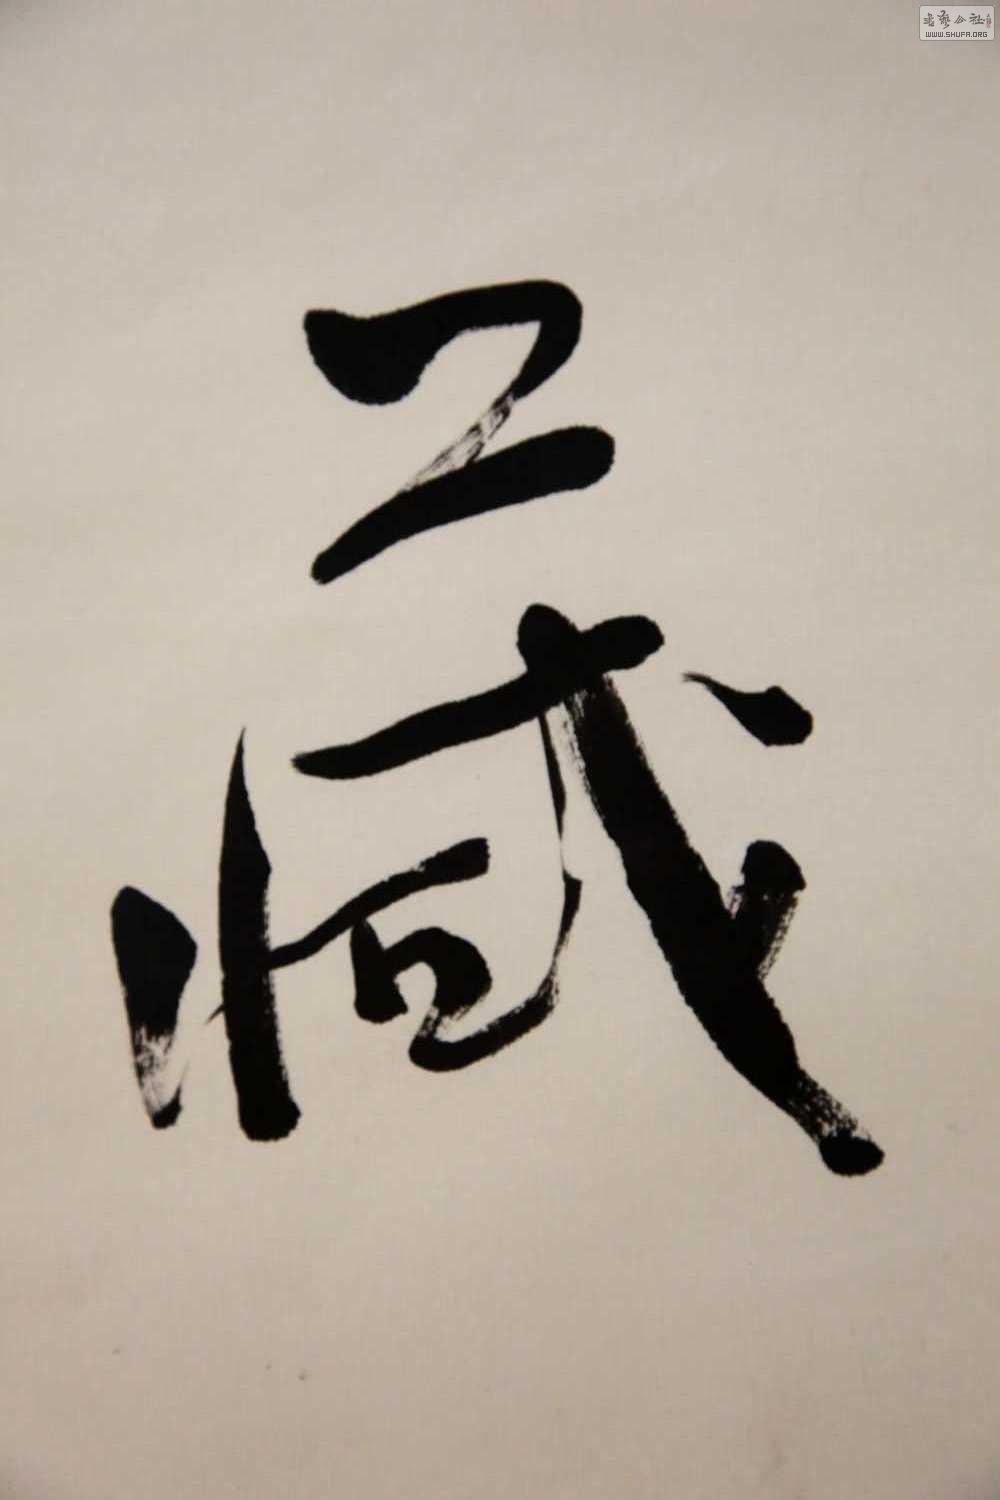 书艺公社
WWW.SHUFA.ORG
藏